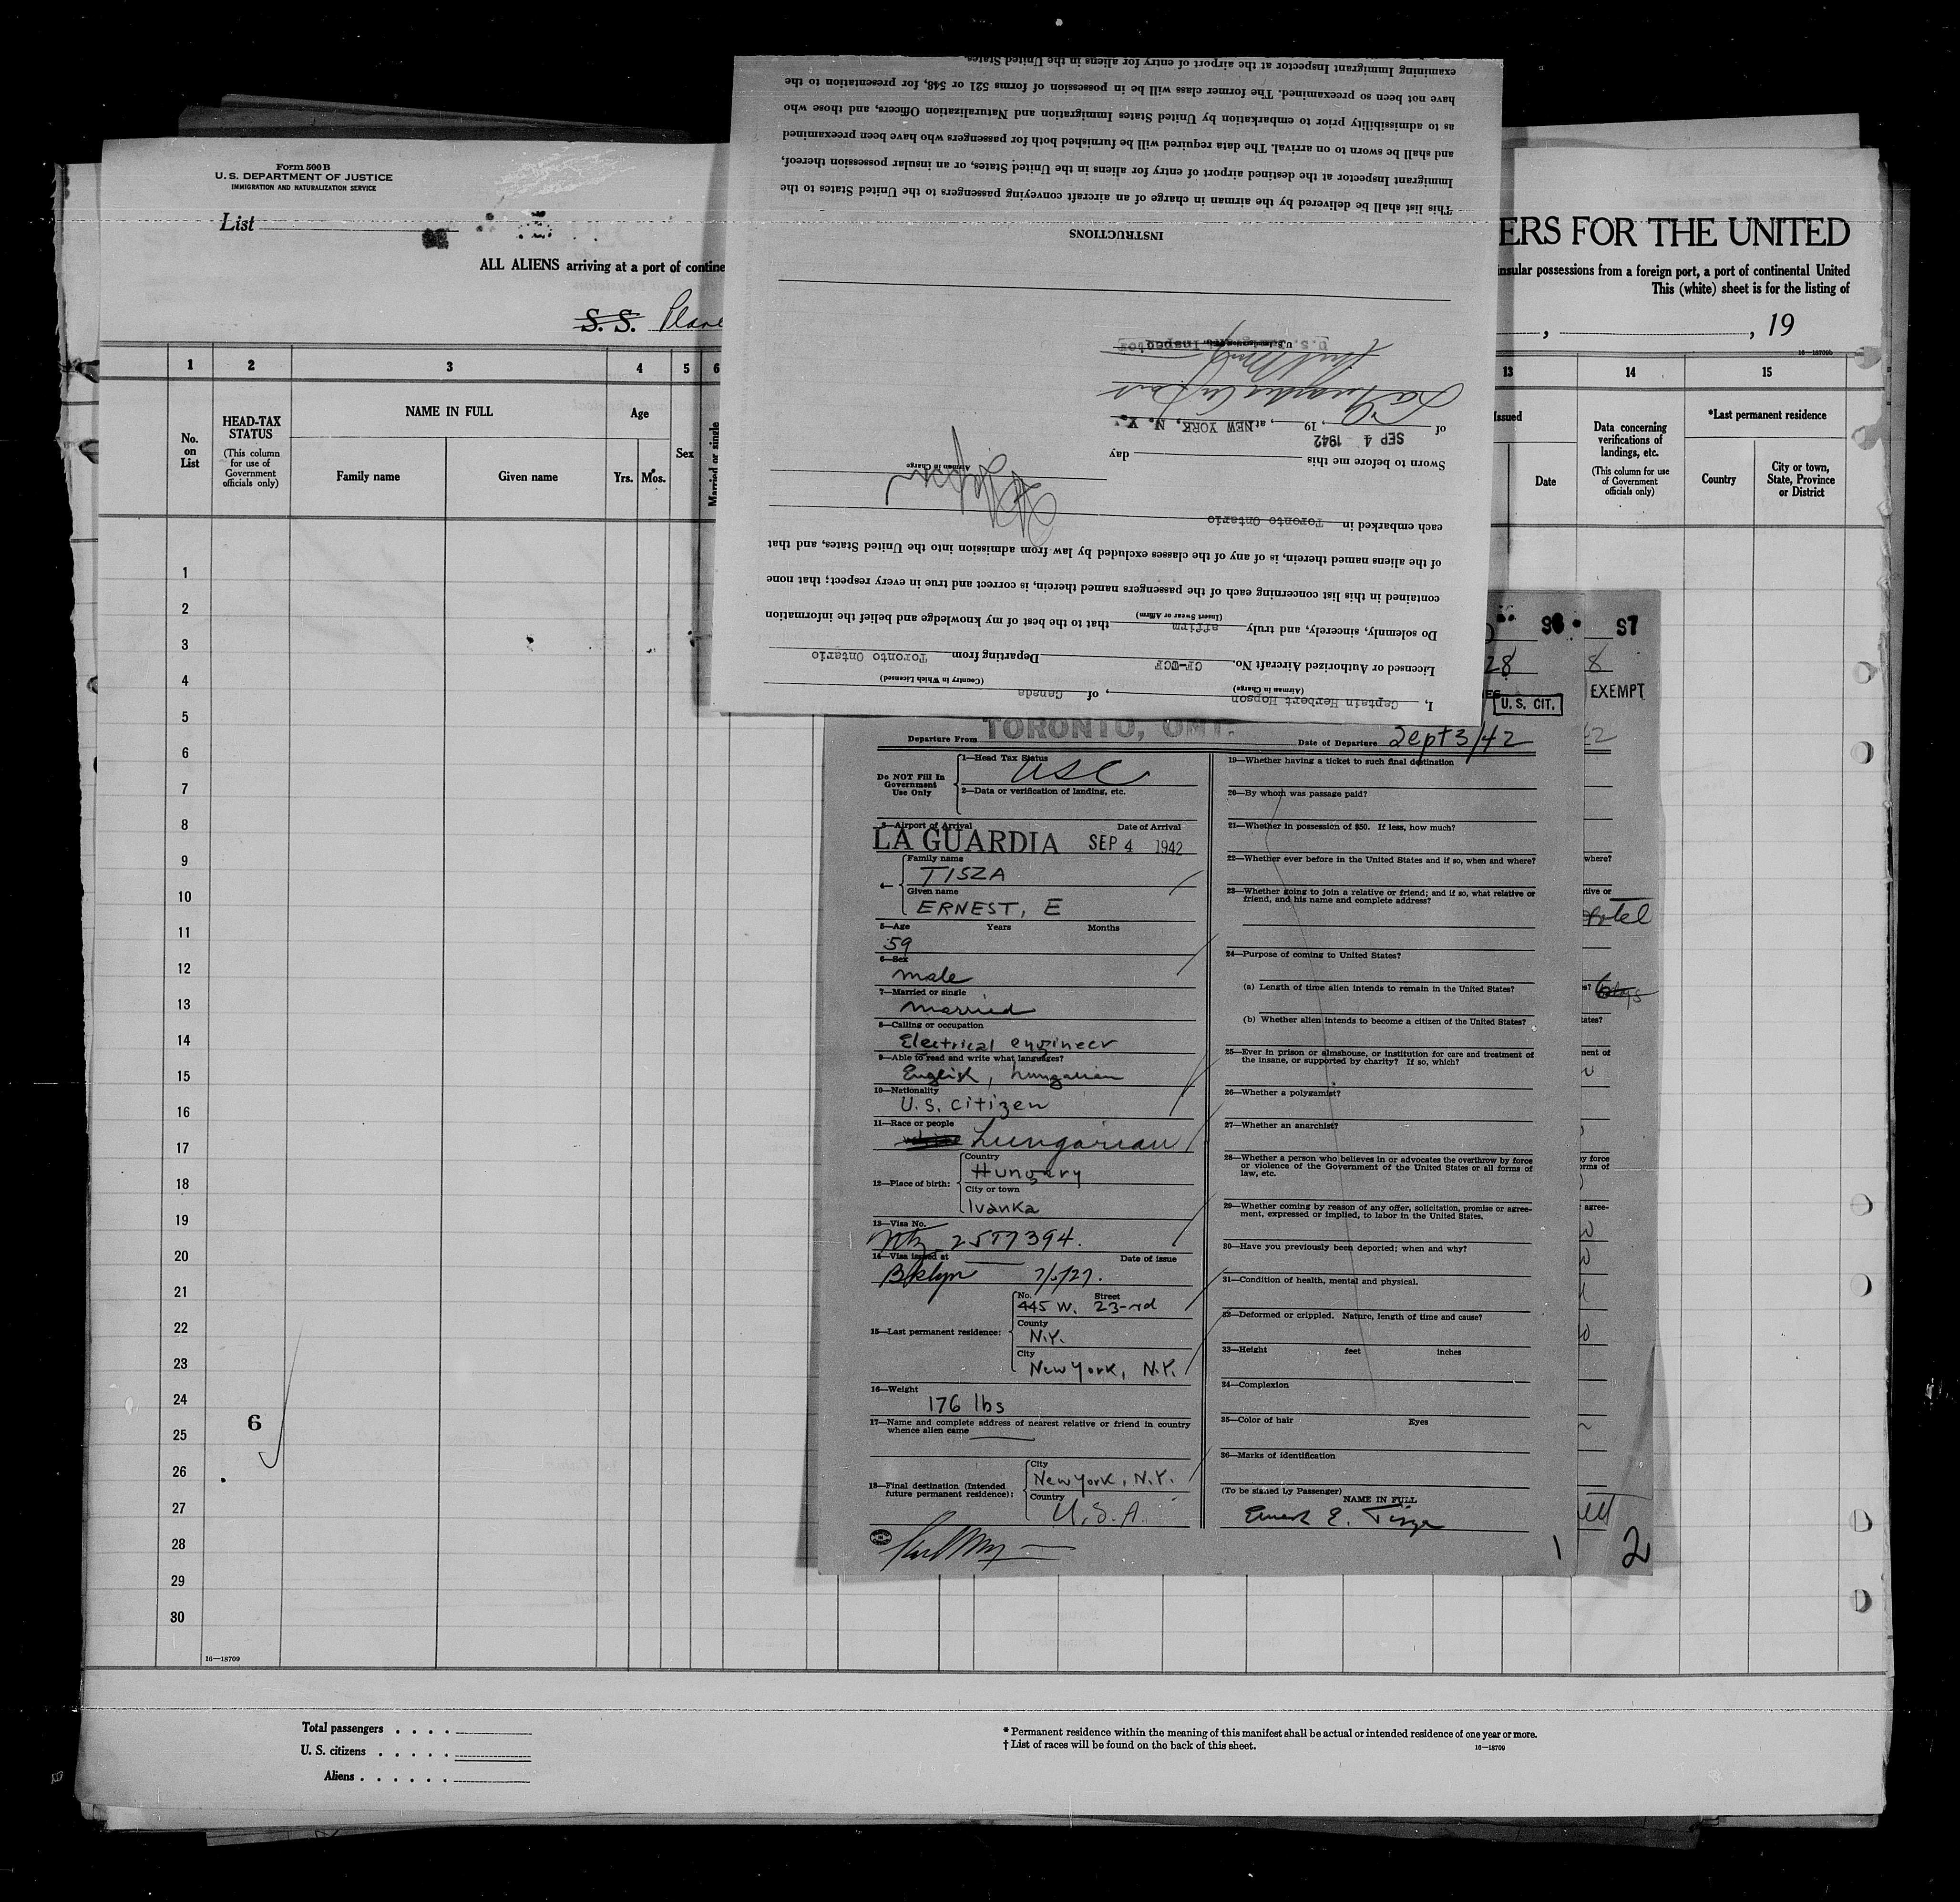 Form 500 B
U. S. DEPARTMENT OF JUSTICE
IMMIGRATION AND NATURALIZATION SERVICE
List
ALL ALIENS arriving at a port of contine
S. S. Plane
ERS FOR THE UNITED
insular possessions from a foreign port, a port of continental United
This (white) sheet is for the listing of
, , 19
16—18709b
1 2 3 4 5 6
13 14 15
No. on List
HEAD-TAX STATUS
(This column for use of Government officials only)
NAME IN FULL
Family name
Given name
Age
Yrs. Mos.
Sex
Married or single
Issued
Date
Data concerning verifications of landings, etc.
(This column for use of Government officials only)
*Last permanent residence
Country
City or town, State, Province or District
1
2
3
4
5
6
7
8
9
10
11
12
13
14
15
16
17
18
19
20
21
22
23
24
6
25
26
27
28
29
30
16—18709
Total passengers . . . .
U. S. citizens . . . . .
Aliens . . . . . .
* Permanent residence within the meaning of this manifest shall be actual or intended residence of one year or more.
† List of races will be found on the back of this sheet.
16—18709
I, Captain Herbert Hopson, of Canada
(Airman in Charge) (Country in Which Licensed)
Licensed or Authorized Aircraft No. CF-WCF Departing from Toronto Ontario
Do solemnly, sincerely, and truly affirm that to the best of my knowledge and belief the information
(Insert Swear or Affirm)
contained in this list concerning each of the passengers named therein, is correct and true in every respect; that none
of the aliens named therein, is of any of the classes excluded by law from admission into the United States, and that
each embarked in Toronto Ontario
Airman in Charge
Sworn to before me this day
SEP 4 1942
of , 19 , at NEW YORK, N. Y.
U. S. Immigrant Inspector
INSTRUCTIONS
This list shall be delivered by the airman in charge of an aircraft conveying passengers to the United States to the
Immigrant Inspector at the destined airport of entry for aliens in the United States, or an insular possession thereof,
and shall be sworn to on arrival. The data required will be furnished both for passengers who have been preexamined
as to admissibility prior to embarkation by United States Immigration and Naturalization Officers, and those who
have not been so preexamined. The former class will be in possession of forms 521 or 548, for presentation to the
examining Immigrant Inspector at the airport of entry for aliens in the United States.
S6
S7
28
8
U. S. CIT.
EXEMPT
Departure From TORONTO, ONT.
Date of Departure Sept 3/42
Do NOT Fill In Government Use Only
1—Head Tax Status
USC
2—Data or verification of landing, etc.
3—Airport of Arrival Date of Arrival
LA GUARDIA SEP 4 1942
4— Family name
TISZA
Given name
ERNEST, E
5—Age Years Months
59
6—Sex
male
7—Married or single
Married
8—Calling or occupation
Electrical engineer
9—Able to read and write what languages?
English, hungarian
10—Nationality
U.S. citizen
11—Race or people
hungarian
12—Place of birth:
Country
Hungary
City or town
Ivanka
13—Visa No.
Ntz 2577394.
14—Visa issued at Date of issue
Bklyn
15—Last permanent residence:
No. Street
445 W. 23-rd
County
N.Y.
City
New York, N.Y.
16—Weight
176 lbs
17—Name and complete address of nearest relative or friend in country whence alien came
18—Final destination (Intended future permanent residence):
City
New York, N.Y.
Country
U.S.A.
19—Whether having a ticket to such final destination
20—By whom was passage paid?
21—Whether in possession of $50. If less, how much?
22—Whether ever before in the United States and if so, when and where?
23—Whether going to join a relative or friend; and if so, what relative or
friend, and his name and complete address?
24—Purpose of coming to United States?
(a) Length of time alien intends to remain in the United States?
(b) Whether alien intends to become a citizen of the United States?
25—Ever in prison or almshouse, or institution for care and treatment of
the insane, or supported by charity? If so, which?
26—Whether a polygamist?
27—Whether an anarchist?
28—Whether a person who believes in or advocates the overthrow by force
or violence of the Government of the United States or all forms of
law, etc.
29—Whether coming by reason of any offer, solicitation, promise or agree-
ment, expressed or implied, to labor in the United States.
30—Have you previously been deported; when and why?
31—Condition of health, mental and physical.
32—Deformed or crippled. Nature, length of time and cause?
33—Height feet inches
34—Complexion
35—Color of hair Eyes
36—Marks of identification
(To be signed by Passenger)
NAME IN FULL
Ernest E. Tisza
1
2